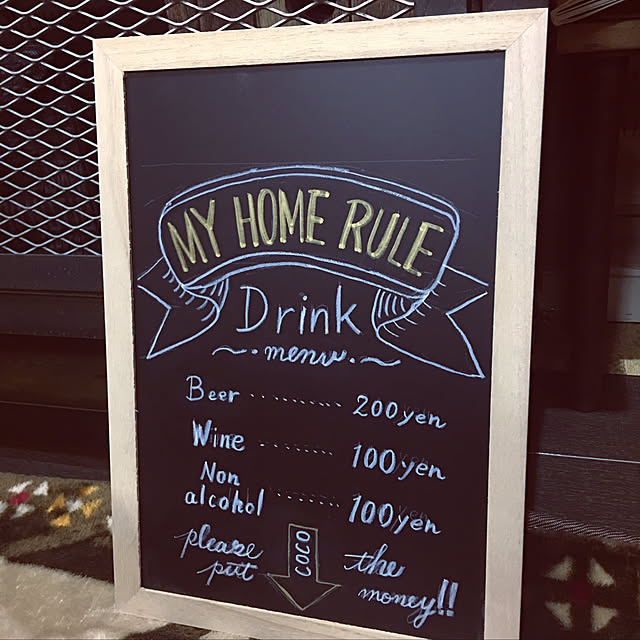 MY HOME RULE
Drink
menu
Beer ........... 200yen
Wine ........... 100yen
Non
alcohol ........... 100yen
please COCO the
put money!!